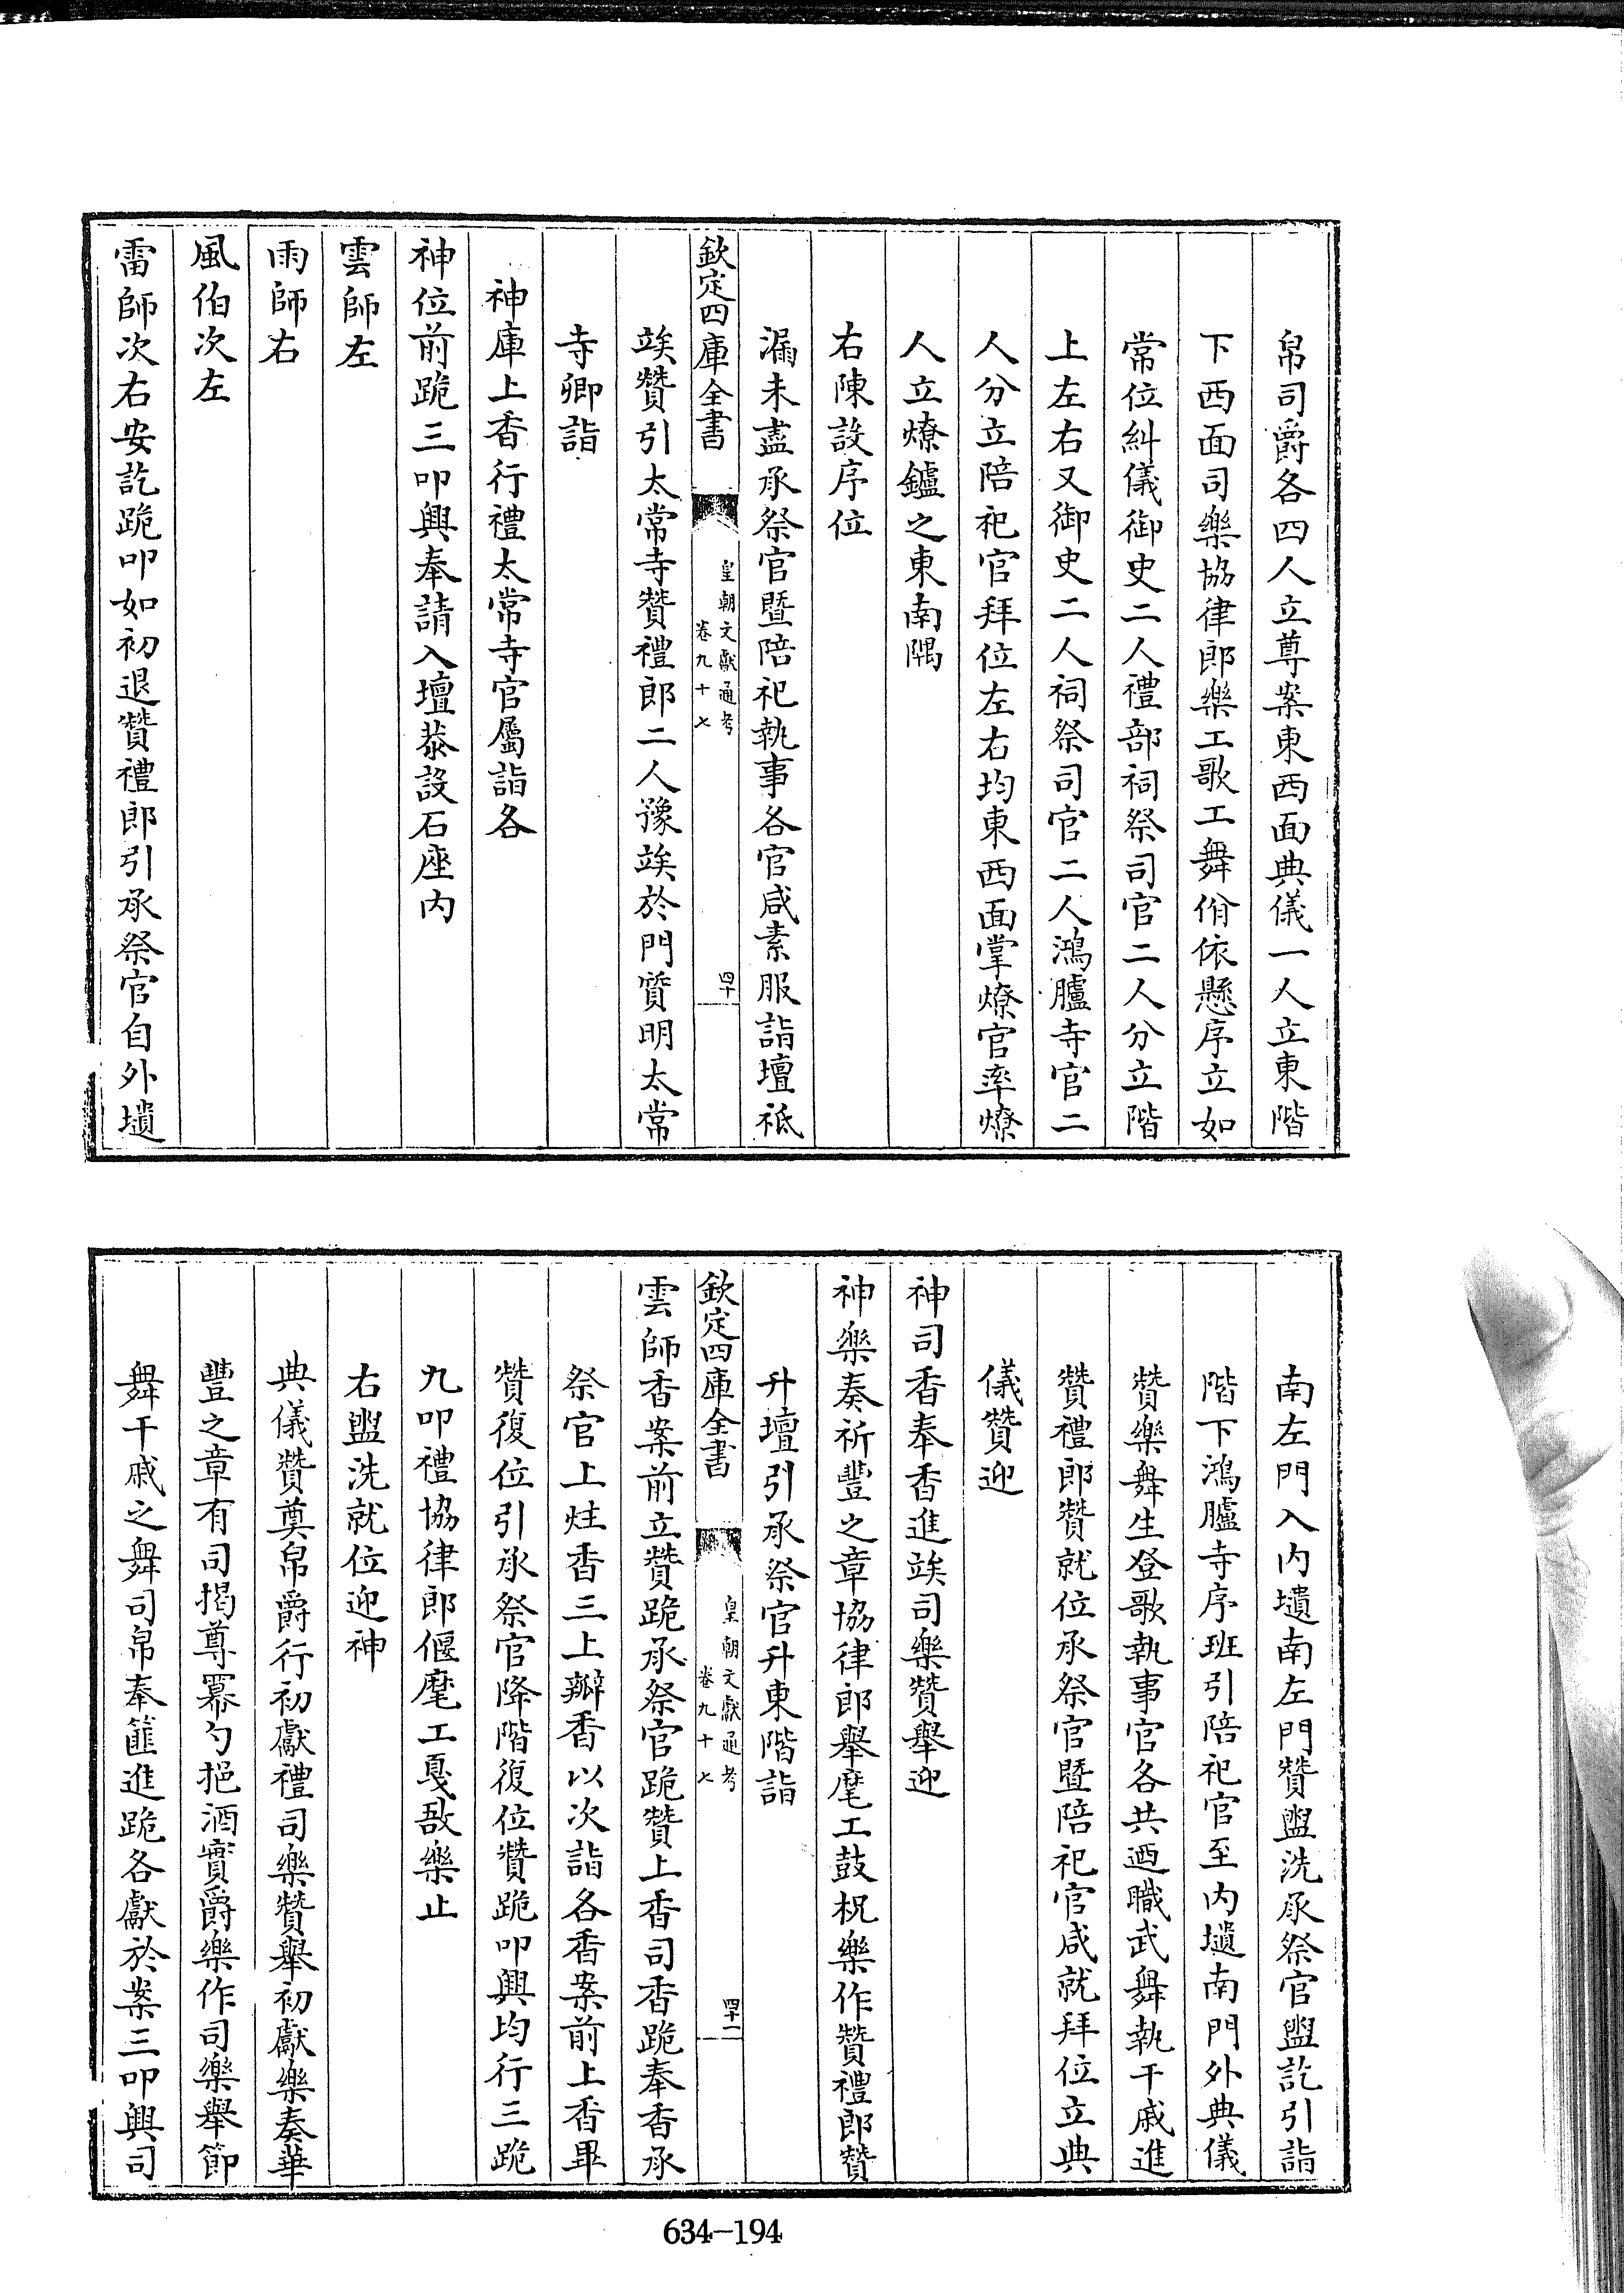 帛司爵各四人立尊案東西面典儀一人立東階
下西面司樂協律郎樂工歌工舞佾依懸序立如
常位糾儀御史二人禮部祠祭司官二人分立階
上左右又御史二人祠祭司官二人鴻臚寺官二
人分立陪祀官拜位左右均東西面掌燎官率燎
人立燎鑪之東南隅
右陳設序位
漏未盡承祭官暨陪祀執事各官咸素服詣壇祗
欽定四庫全書
皇朝文獻通考
卷九十七
四十
竢贊引太常寺贊禮郎二人豫竢於門質明太常
寺卿詣
神庫上香行禮太常寺官屬詣各
神位前跪三叩興奉請入壇恭設石座內
雲師左
雨師右
風伯次左
雷師次右安訖跪叩如初退贊禮郎引承祭官自外壝
南左門入內壝南左門贊盥洗承祭官盥訖引詣
階下鴻臚寺序班引陪祀官至內壝南門外典儀
贊樂舞生登歌執事官各共迺職武舞執干戚進
贊禮郎贊就位承祭官暨陪祀官咸就拜位立典
儀贊迎
神司香奉香進竢司樂贊舉迎
神樂奏祈豐之章協律郎舉麾工鼓柷樂作贊禮郎贊
升壇引承祭官升東階詣
欽定四庫全書
皇朝文獻通考
卷九十七
四十一
雲師香案前立贊跪承祭官跪贊上香司香跪奉香承
祭官上炷香三上瓣香以次詣各香案前上香畢
贊復位引承祭官降階復位贊跪叩興均行三跪
九叩禮協律郎偃麾工戛敔樂止
右盥洗就位迎神
典儀贊奠帛爵行初獻禮司樂贊舉初獻樂奏華
豐之章有司揭尊冪勺挹酒實爵樂作司樂舉節
舞干戚之舞司帛奉篚進跪各獻於案三叩興司
634-194